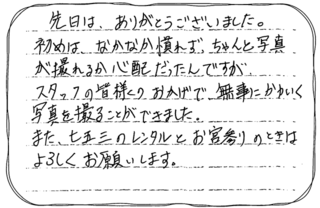 先日は、ありがとうございました。
初めは、なかなか慣れず、ちゃんと写真
が撮れるか心配だったんですが
スタッフの皆様のおかげで、無事にかわいく
写真を撮ることができました。
また、七五三のレンタルとお宮参りのときは
よろしくお願いします。